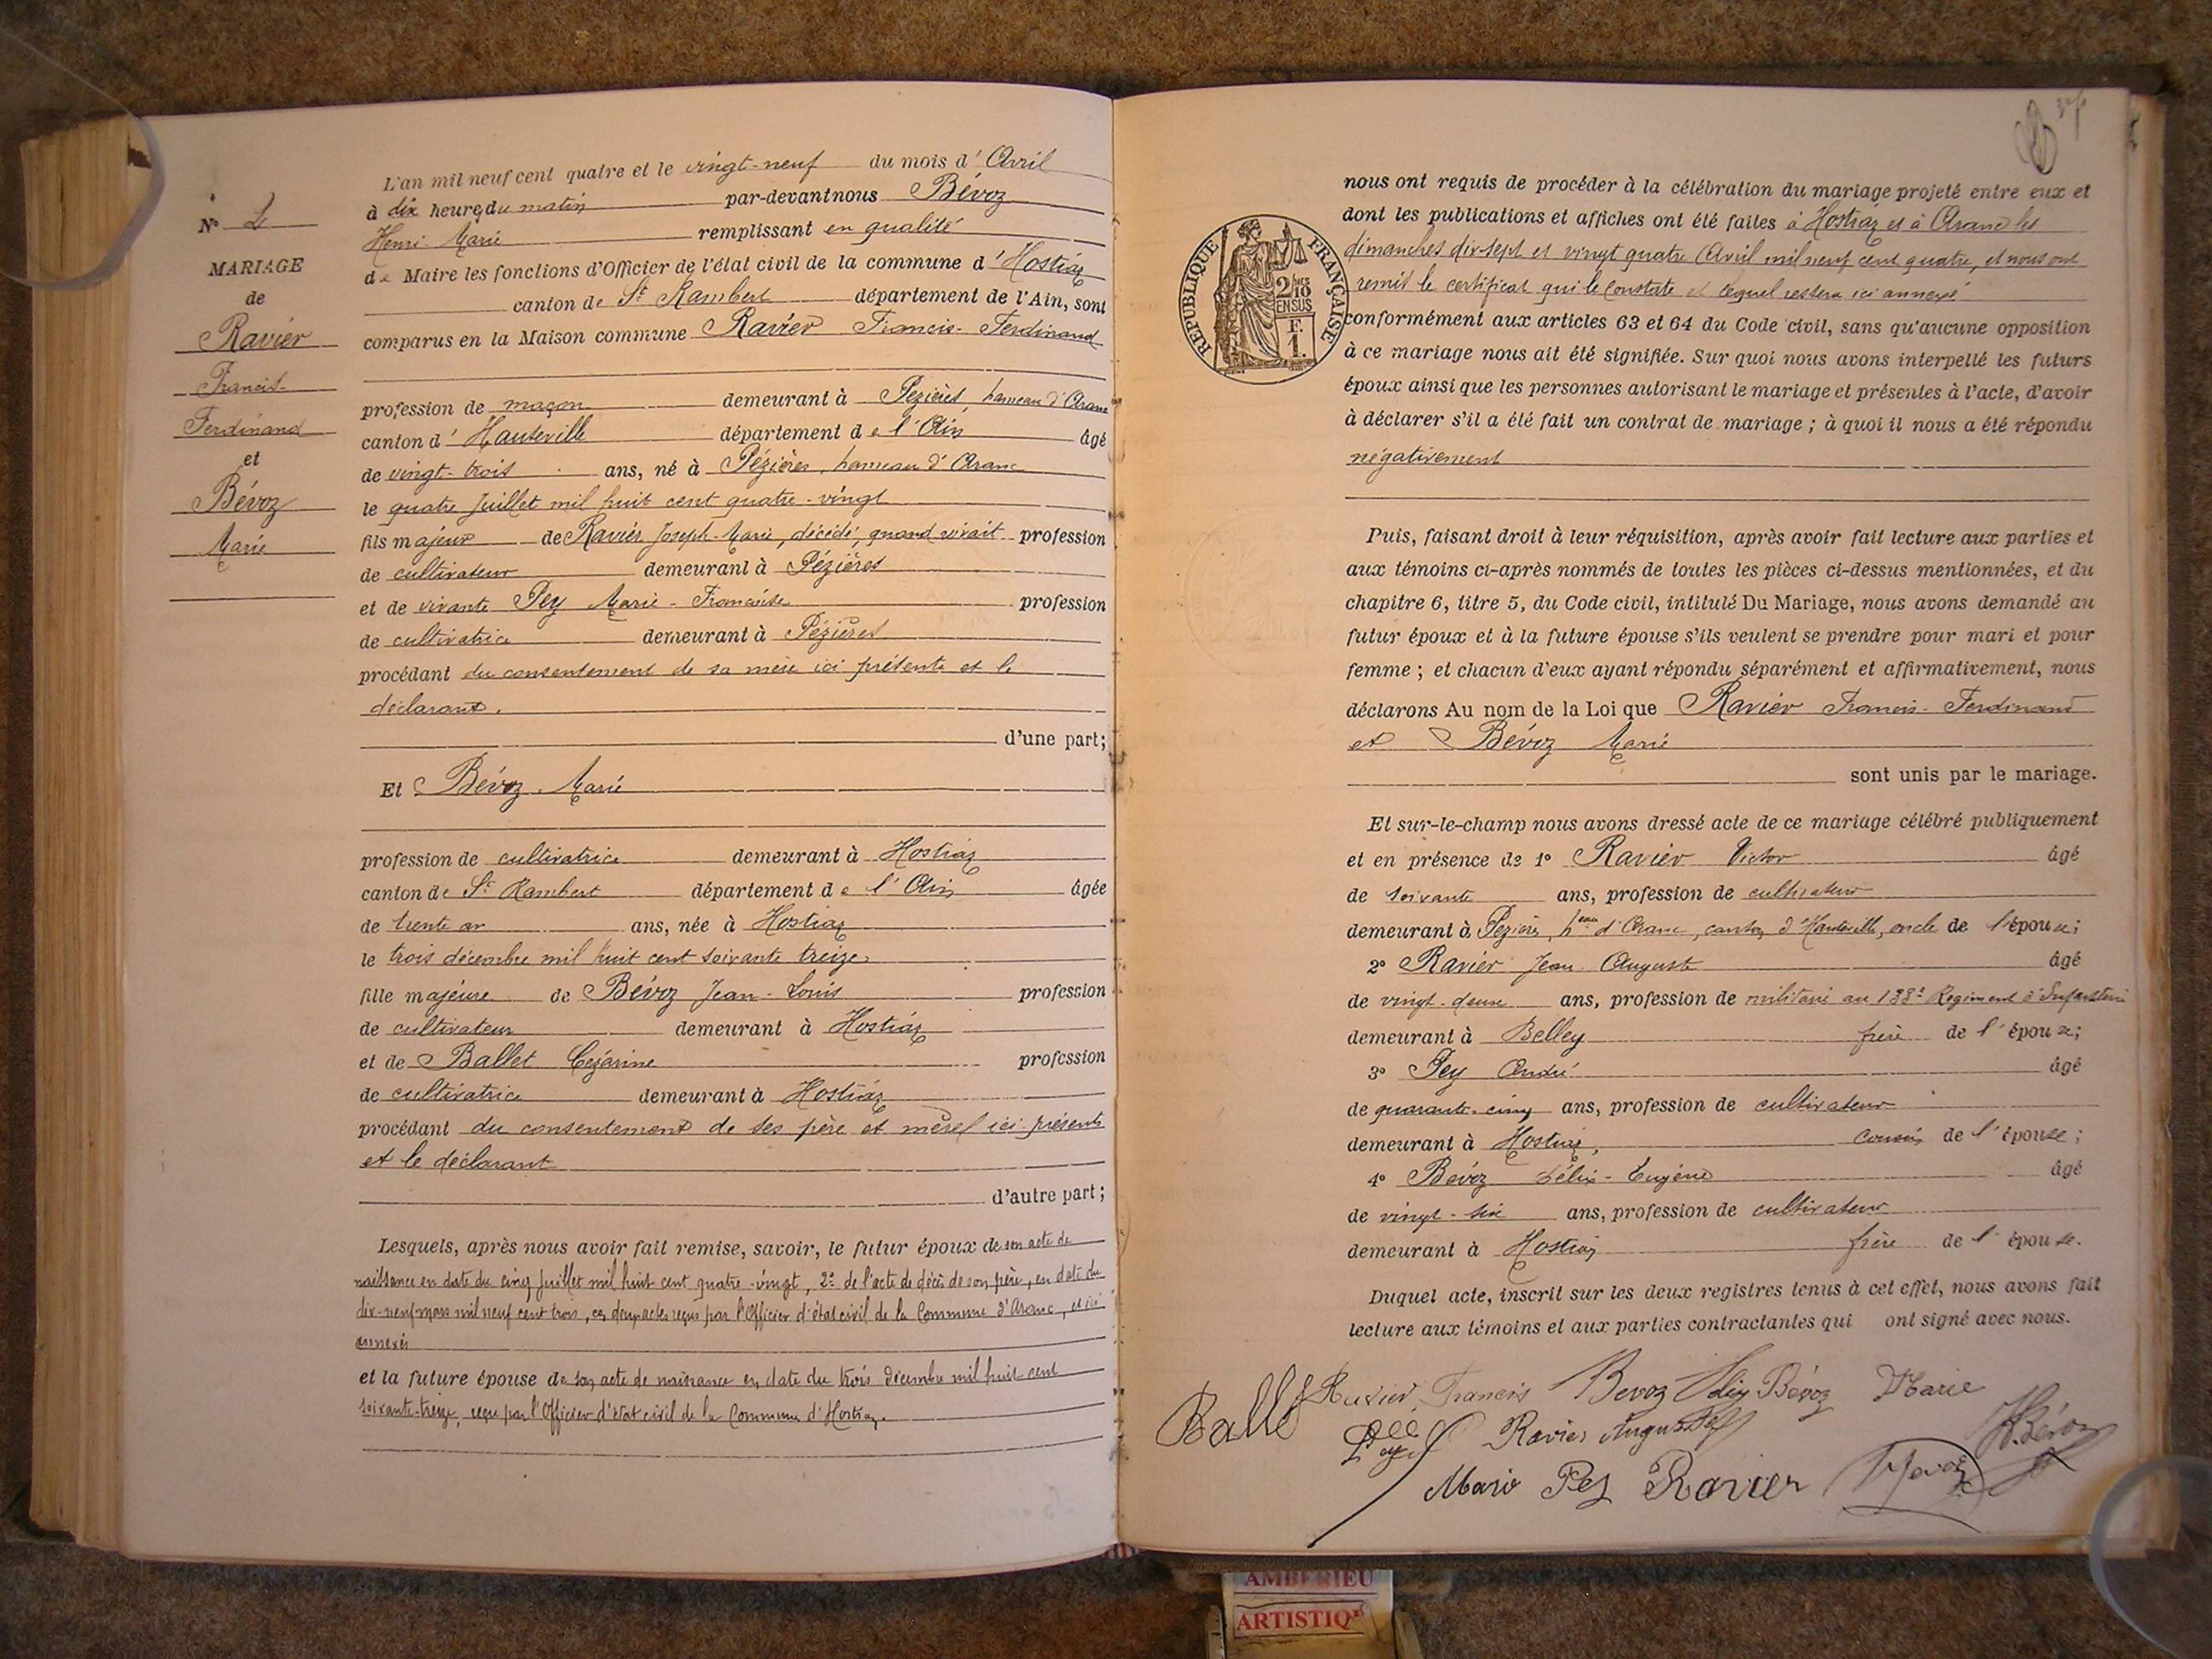 N° 2
MARIAGE
de
Ravier
Francis-
Ferdinand
et
Bévoz
Marie
L'an mil neuf cent quatre et le vingt-neuf du mois d'Avril
à dix heures du matin par-devant nous Bévoz
Henri Marie remplissant en qualité
de Maire les fonctions d'Officier de l'état civil de la commune d'Hostiaz
canton de St Rambert département de l'Ain, sont
comparus en la Maison commune Ravier Francis-Ferdinand
profession de maçon demeurant à Pezières hameau d'Aranc
canton d'Hauteville département de l'Ain âgé
de vingt-trois ans, né à Pézières, hameau d'Aranc
le quatre Juillet mil huit cent quatre-vingt
fils majeur de Ravier Joseph-Marie, décédé, quand vivait profession
de cultivateur demeurant à Pézières
et de vivante Pey Marie-Françoise profession
de cultivatrice demeurant à Pézières
procédant du consentement de sa mère ici présente et le
déclarant.
d'une part;
Et Bévoz Marie
profession de cultivatrice demeurant à Hostiaz
canton de St Rambert département de l'Ain âgée
de trente ans, née à Hostiaz
le trois décembre mil huit cent soixante treize
fille majeure de Bévoz Jean-Louis profession
de cultivateur demeurant à Hostiaz
et de Ballet Cezarine profession
de cultivatrice demeurant à Hostiaz
procédant du consentement de ses père et mère ici présents
et le déclarant
d'autre part;
Lesquels, après nous avoir fait remise, savoir, le futur époux de son acte de
naissance en date du cinq Juillet mil huit cent quatre-vingt, 2° de l'acte de décès de son père, en date du
dix-neuf mars mil neuf cent trois, ces deux actes reçus par l'Officier d'état civil de la Commune d'Aranc, et ici
annexés
et la future épouse de son acte de naissance en date du trois décembre mil huit cent
soixante-treize, reçu par l'Officier d'état civil de la Commune d'Hostiaz.
RÉPUBLIQUE FRANÇAISE
2/10
EN SUS
F.
1.
nous ont requis de procéder à la célébration du mariage projeté entre eux et
dont les publications et affiches ont été faites à Hostiaz et à Aranc les
dimanches dix-sept et vingt quatre Avril mil neuf cent quatre, et nous ont
remis le certificat qui le constate et lequel restera ici annexé
conformément aux articles 63 et 64 du Code civil, sans qu'aucune opposition
à ce mariage nous ait été signifiée. Sur quoi nous avons interpellé les futurs
époux ainsi que les personnes autorisant le mariage et présentes à l'acte, d'avoir
à déclarer s'il a été fait un contrat de mariage ; à quoi il nous a été répondu
négativement
Puis, faisant droit à leur réquisition, après avoir fait lecture aux parties et
aux témoins ci-après nommés de toutes les pièces ci-dessus mentionnées, et du
chapitre 6, titre 5, du Code civil, intitulé Du Mariage, nous avons demandé au
futur époux et à la future épouse s'ils veulent se prendre pour mari et pour
femme ; et chacun d'eux ayant répondu séparément et affirmativement, nous
déclarons Au nom de la Loi que Ravier Francis-Ferdinand
et Bévoz Marie
sont unis par le mariage.
Et sur-le-champ nous avons dressé acte de ce mariage célébré publiquement
et en présence de 1° Ravier Victor âgé
de soixante ans, profession de cultivateur
demeurant à Pezières, heau d'Aranc, canton d'Hauteville, oncle de l'époux;
2° Ravier Jean Auguste âgé
de vingt-deux ans, profession de militaire au 133e Régiment d'Infanterie
demeurant à Belley frère de l'époux;
3° Pey André âgé
de quarante-cinq ans, profession de cultivateur
demeurant à Hostiaz, cousin de l'épouse;
4° Bévoz Félix-Eugène âgé
de vingt-six ans, profession de cultivateur
demeurant à Hostiaz frère de l'épouse.
Duquel acte, inscrit sur les deux registres tenus à cet effet, nous avons fait
lecture aux témoins et aux parties contractantes qui ont signé avec nous.
Ravier Francis Bevoz Félix Bévoz Marie
Ballet Pey Ravier Auguste H. Bévoz
Marie Pey Ravier Bevoz
AMBERIEU
ARTISTIQ